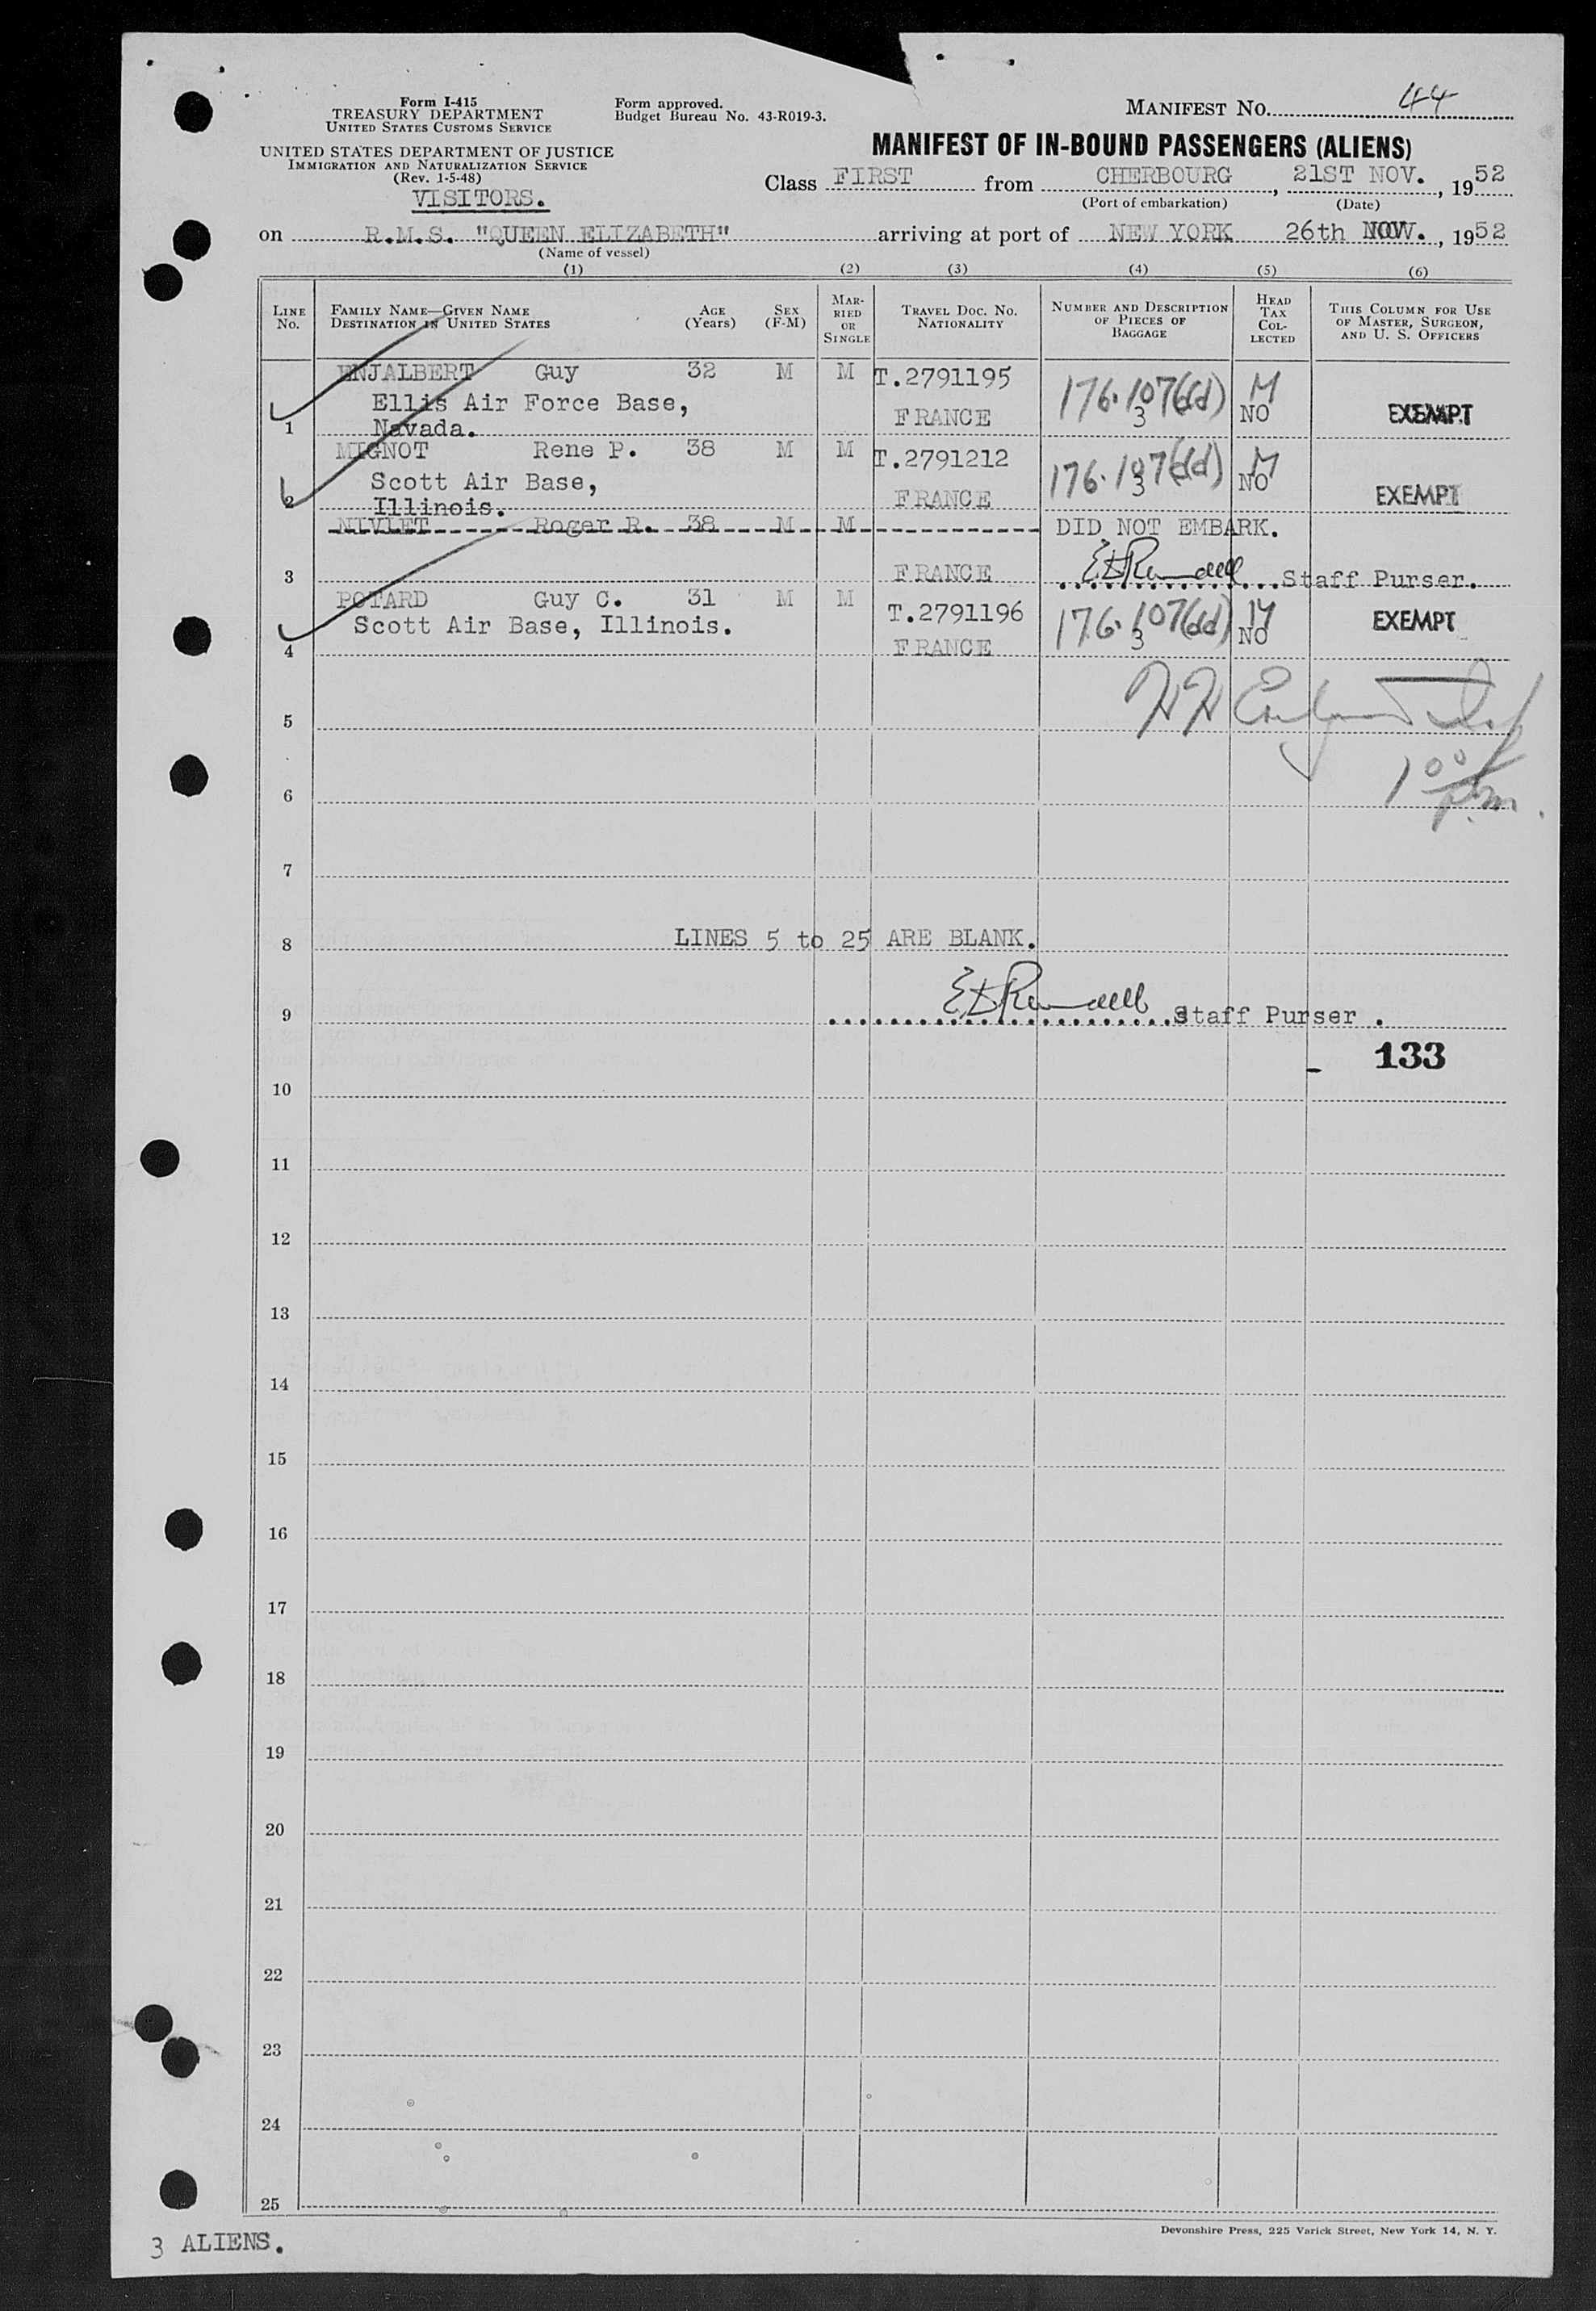 Form I-415
TREASURY DEPARTMENT
UNITED STATES CUSTOMS SERVICE
UNITED STATES DEPARTMENT OF JUSTICE
IMMIGRATION AND NATURALIZATION SERVICE
(Rev. 1-5-48)
VISITORS.
Form approved.
Budget Bureau No. 43-R019-3.
MANIFEST NO. 44
MANIFEST OF IN-BOUND PASSENGERS (ALIENS)
Class FIRST from CHERBOURG, 21ST NOV., 1952
(Port of embarkation) (Date)
on R.M.S. "QUEEN ELIZABETH" arriving at port of NEW YORK 26th NOV., 1952
(Name of vessel)
(1) (2) (3) (4) (5) (6)
LINE No. FAMILY NAME—GIVEN NAME DESTINATION IN UNITED STATES AGE (Years) SEX (F-M) MARRIED OR SINGLE TRAVEL DOC. NO. NATIONALITY NUMBER AND DESCRIPTION OF PIECES OF BAGGAGE HEAD TAX COLLECTED THIS COLUMN FOR USE OF MASTER, SURGEON, AND U. S. OFFICERS
ENJALBERT Guy 32 M M T.2791195 176.107(dd) M
Ellis Air Force Base, FRANCE 3 NO EXEMPT
1 Navada.
MIGNOT Rene P. 38 M M T.2791212 176.107(dd) M
2 Scott Air Base, FRANCE 3 NO EXEMPT
Illinois.
NIVLET Roger R. 38 M M DID NOT EMBARK.
3 FRANCE Staff Purser.
POTARD Guy C. 31 M M T.2791196 176.107(dd) M EXEMPT
Scott Air Base, Illinois. 3 NO
4 FRANCE
5
6 1 00 p.m.
7
8 LINES 5 to 25 ARE BLANK.
9 Staff Purser .
133
10
11
12
13
14
15
16
17
18
19
20
21
22
23
24
25
Devonshire Press, 225 Varick Street, New York 14, N. Y.
3 ALIENS.